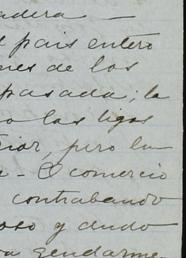 adera —
l pais entero
nes de los
pasada; la
o las ligas
ior, pero la
a - El comercio
contrabando
oso y dudo
a gendarme-